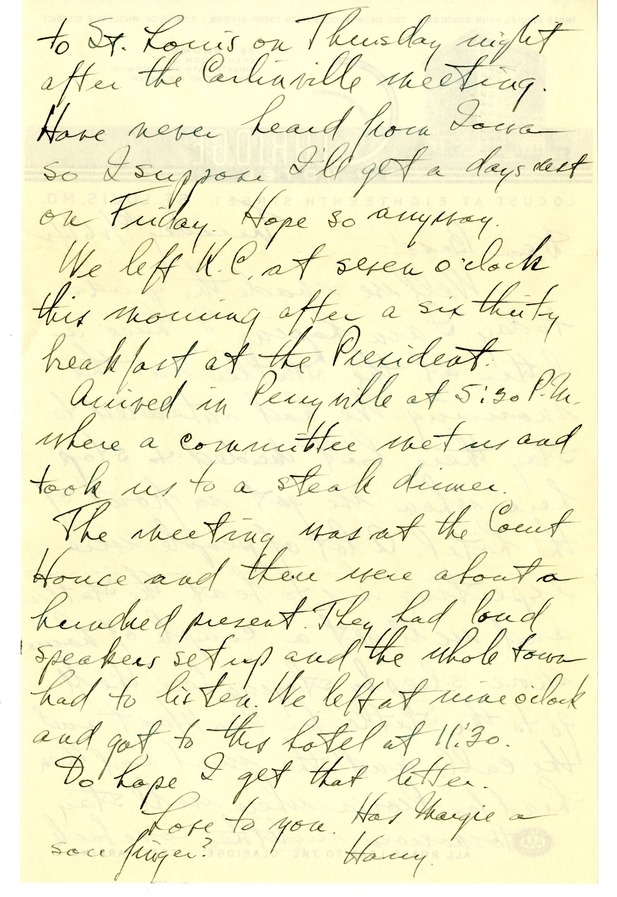 to St. Louis on Thursday night
after the Carlinville meeting.
Have never heard from Iowa
so I suppose I'll get a days rest
on Friday. Hope so anyway.
We left K.C. at seven o'clock
this morning after a six thirty
breakfast at the President.
Arrived in Perryville at 5:30 P.M.
where a committee met us and
took us to a steak dinner.
The meeting was at the Court
House and there were about a
hundred present. They had loud
speakers set up and the whole town
had to listen. We left at nine oclock
and got to this hotel at 11:30.
Do hope I get that letter.
Love to you. Has Margie a
sore finger? Harry.